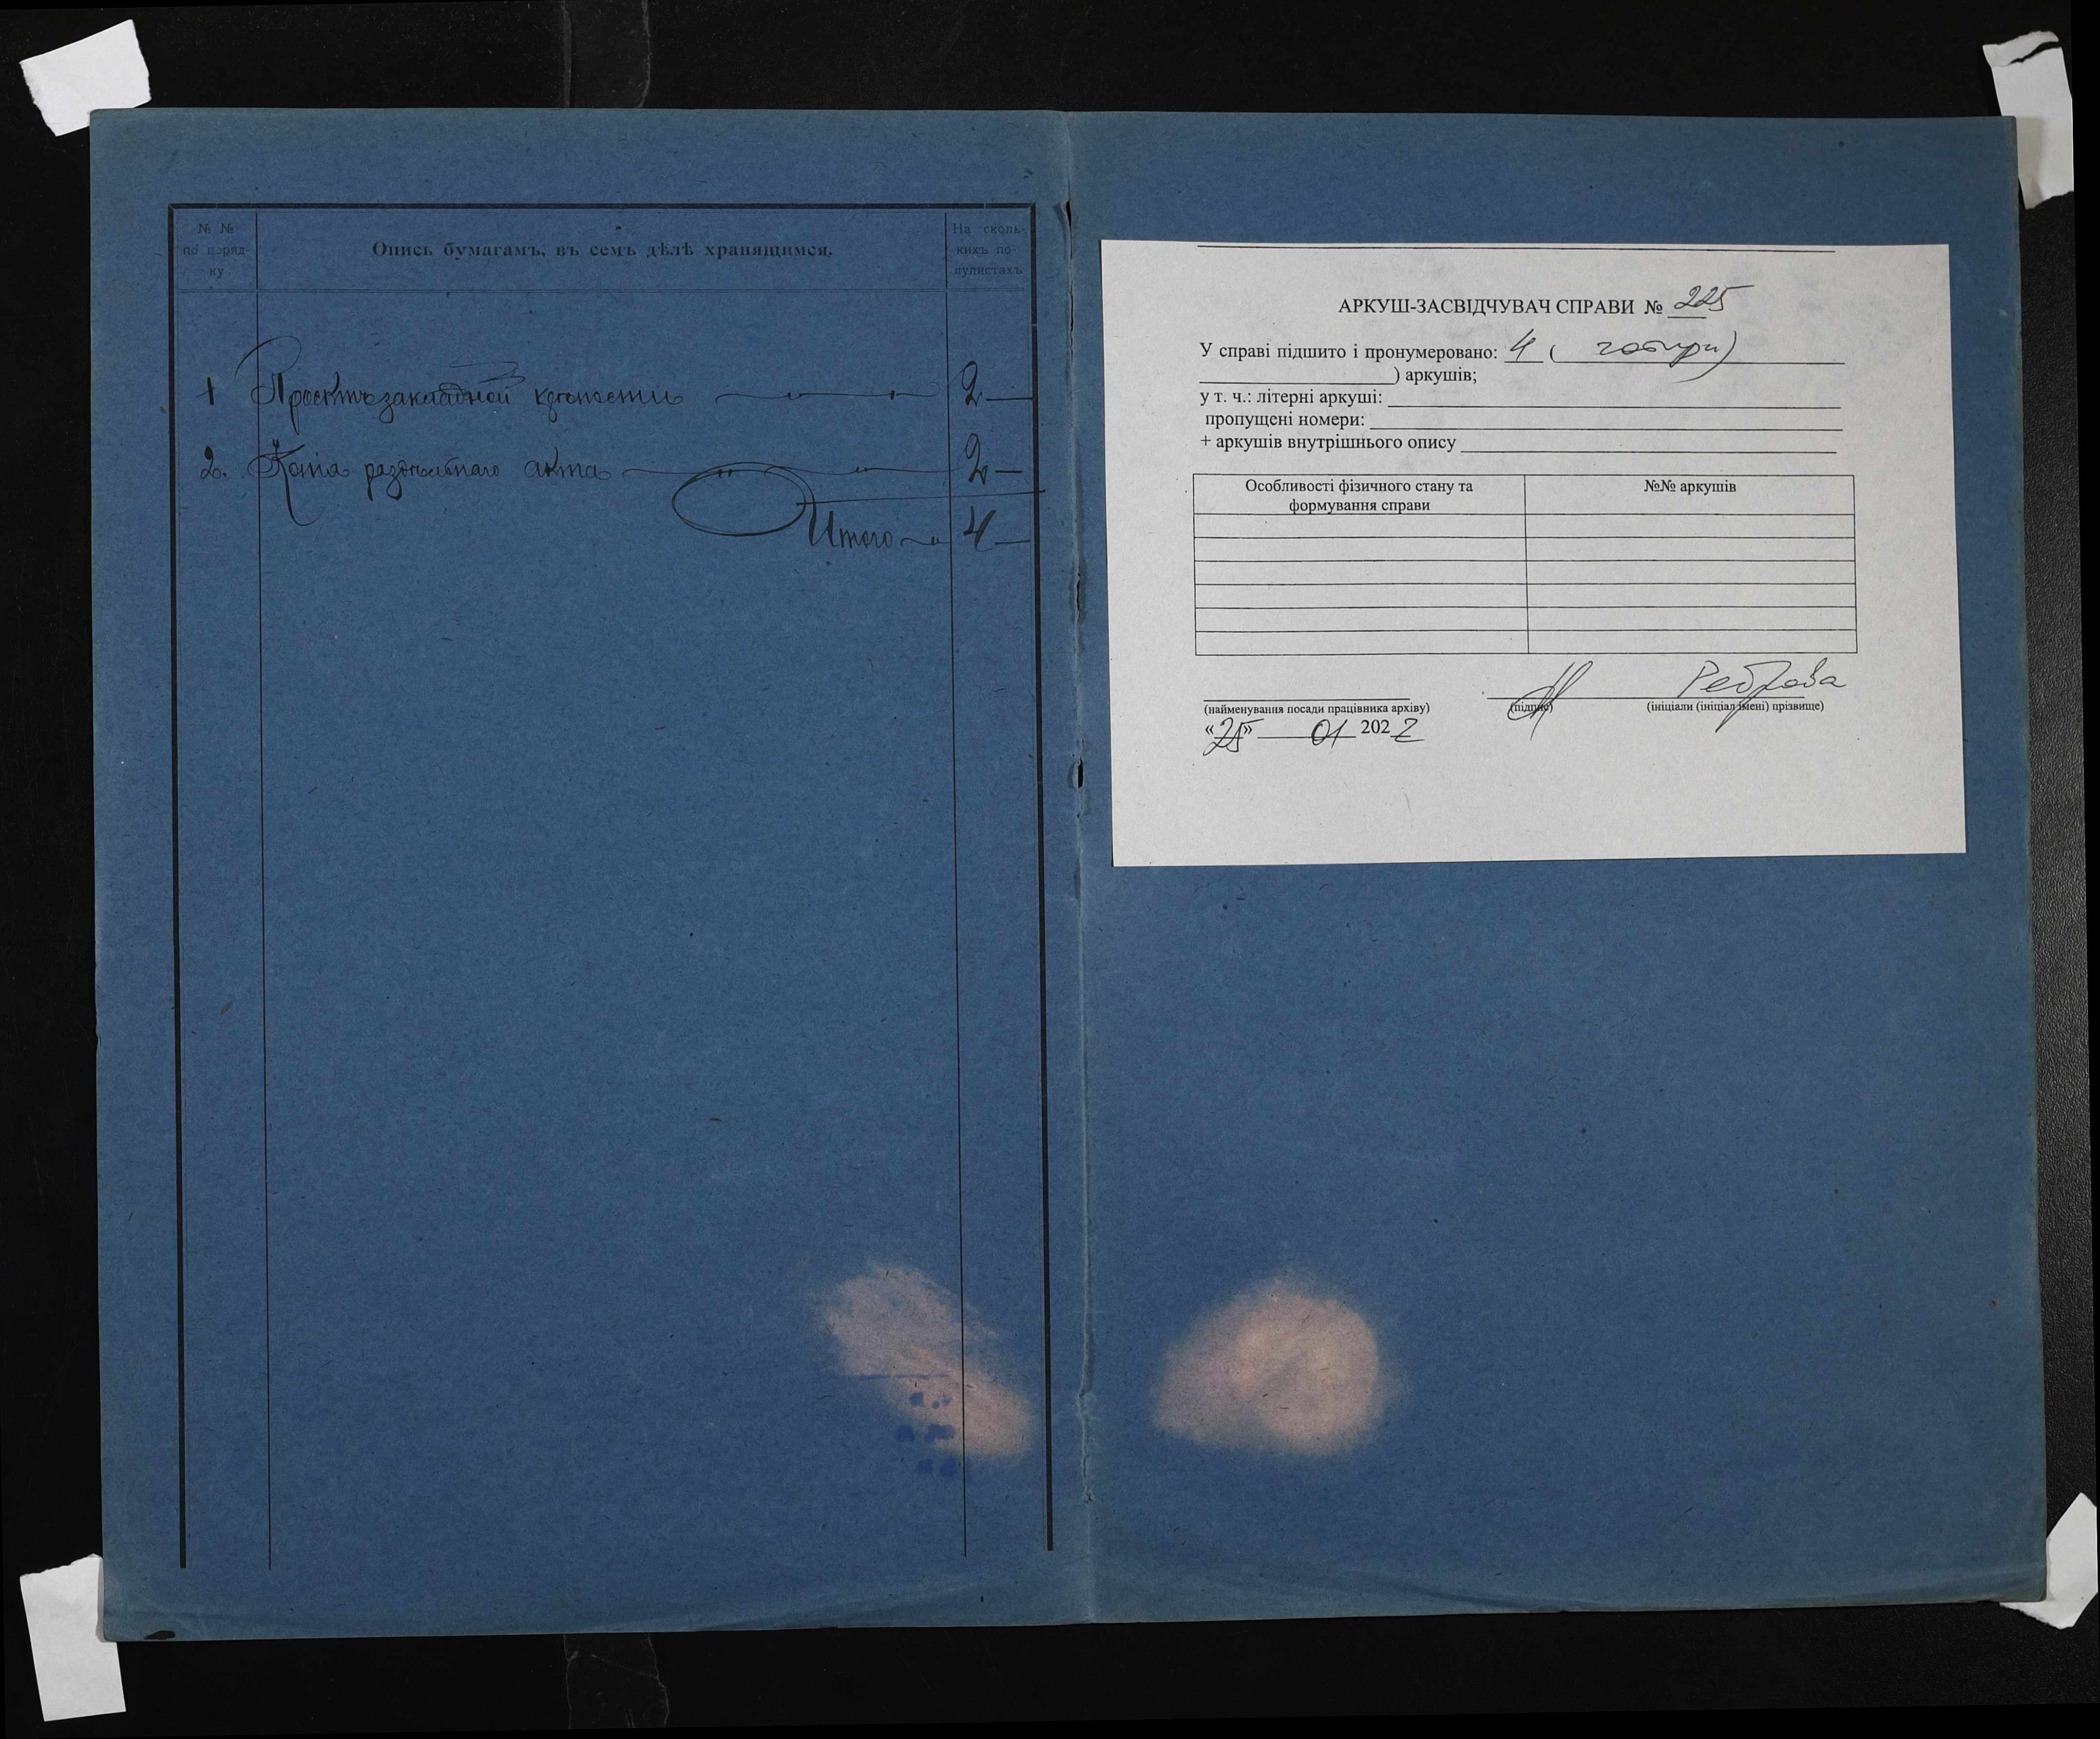 № №
по поряд-
ку
Опись бумагамъ, въ семъ дѣлѣ хранящимся.
На сколь-
кихъ по-
лулистахъ
1 Проектъ закладной крѣпости 2 —
2. Копія раздѣльнаго акта 2 —
Итого 4 —
АРКУШ-ЗАСВІДЧУВАЧ СПРАВИ № 225
У справі підшито і пронумеровано: 4 ( чотири)
) аркушів;
у т. ч.: літерні аркуші:
пропущені номери:
+ аркушів внутрішнього опису
Особливості фізичного стану та
формування справи
№№ аркушів
Реброва
(найменування посади працівника архіву) (підпис) (ініціали (ініціал імені) прізвище)
«25» 01 2022